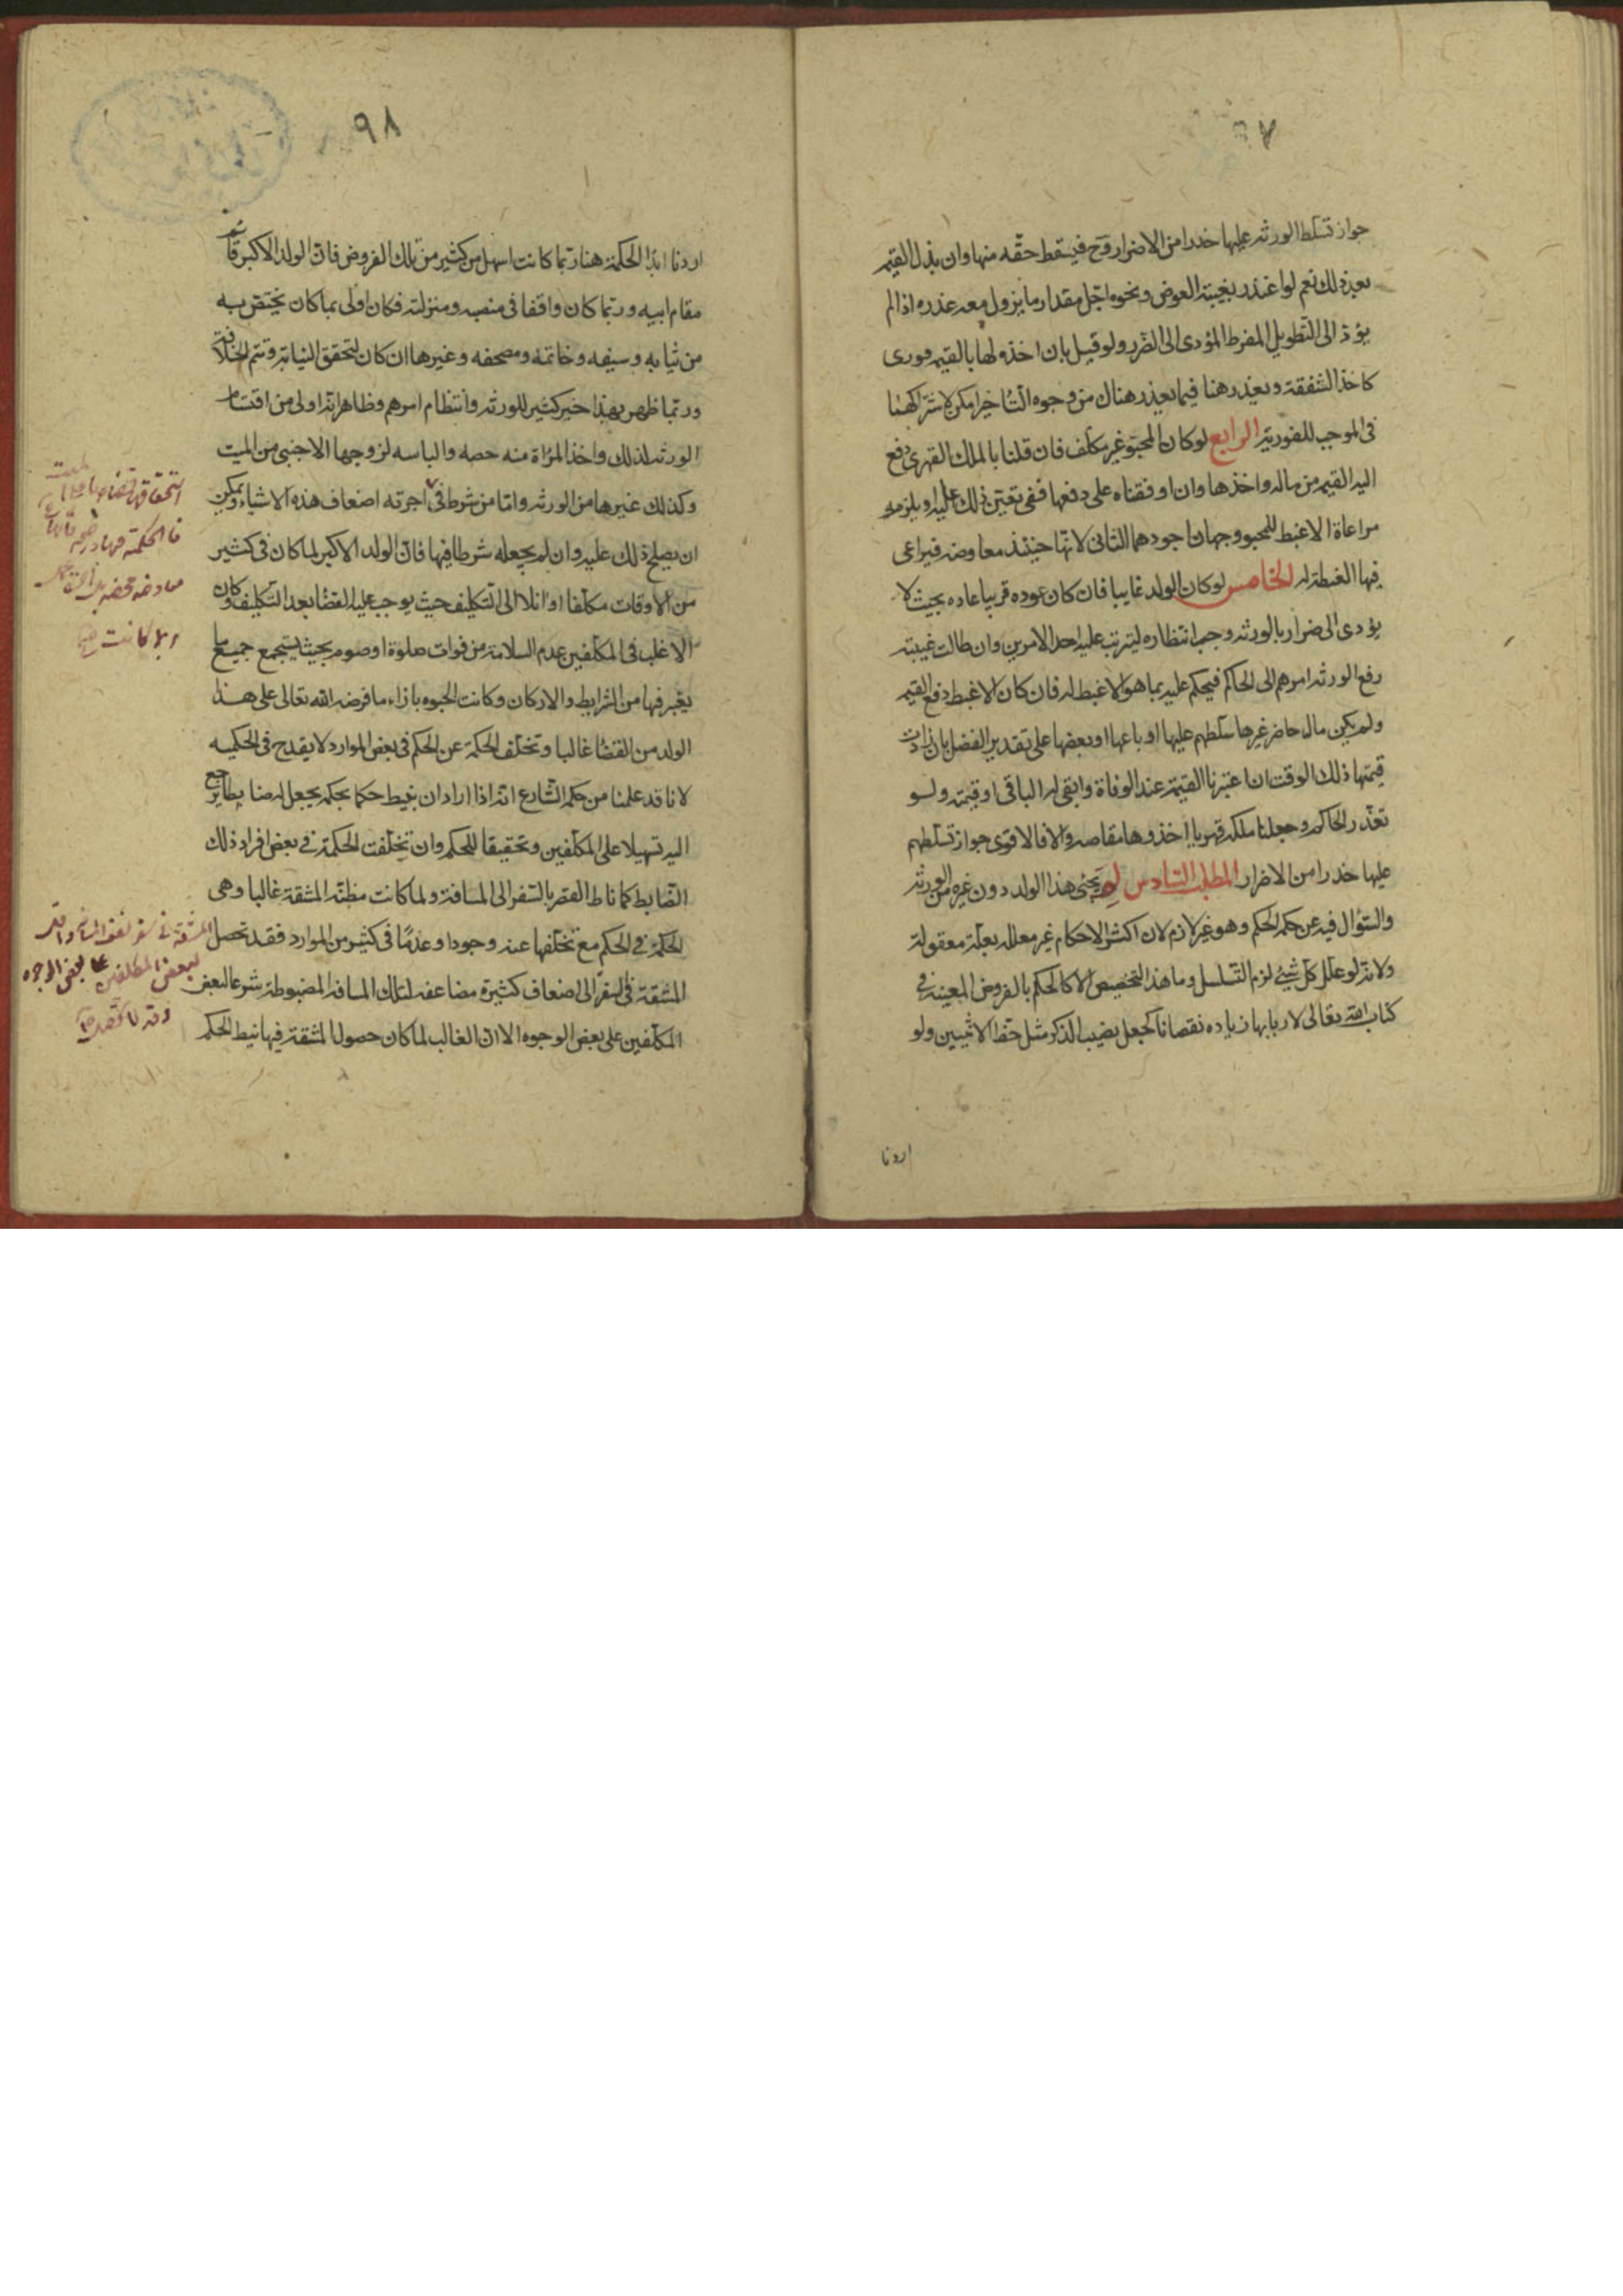 ٩٧
جواز تسلط الورثه عليها حذرا من الاضرار وح فيسقط حقّه منها وان بذل القيمه
بعد ذلك نعم لو اعتذر بغيبته العوض ونحوه اجّل مقدار ما يزول معه عذره اذا لم
يؤد الى التّطويل المفرط المؤدى الى الضّرر ولو قيل بان اخذه لها بالقيمه فورى
كاخذ الشفقة ويعذر هنا فيما يعذر هناك من وجوه التّاخير امكن لاشتراكهما
فى الموجب للفوريّه الرابع لو كان المحبّو غير مكلف فان قلنا بالملك القهرى دفع
اليه القيمه من ماله واخذها وان اوقفناه على دفعها ففى تعيّن ذلك عليه او يلزمه
مراعاة الاغبط للمحبو وجهان اجودهما الثانى لانّها حينئذ معاوضه فيراعى
فيها الغبطه له الخامس لو كان الولد غايبا فان كان عوده قريبا عاده بحيث لا
يؤدى الى ضرار بالورثه وجب انتظاره ليترتب عليه احد الامرين وان طالت غيبته
رفع الورثه امرهم الى الحاكم فيحكم عليه بما هو الاغبط له فان كان الاغبط دفع القيمه
ولم يكن مال حاضر غيرها سلّطهم عليها او باعها او بعضها على تقدير الفضل بان زادت
قيمتها ذلك الوقت ان اعتبرنا القيمة عند الوفاة وابقى له الباقى او قيمته ولو
تعذّر الحاكم وجعلنا ملكه قهريا اخذوها مقاصه والا فالاقوى جواز تسلّطهم
عليها حذرا من الاضرار المطلب السّادس لم يحبى هذا الولد دون غيره من الورثه
والسّؤال فيه عن حكم الحكم وهو غير لازم لان اكثر الاحكام غير معلله بعلّة معقولة
ولانّه لو علّل كل شيئ لزم التّسلسل وما هذا التخصيص الا كالحكم بالفروض المعينه فى
كتاب الله تعالى لاربابها زياده نقصانا كجعل نصيب الذكر مثل حظّ الانثيين ولو
اردنا
٩٨
اردنا ابدا الحكمة هنا ربّما كانت اسهل من كثير من تلك الفروض فانّ الولد الاكبر قائم
مقام ابيه وربّما كان واقفا فى منصبه ومنزلته فكان اولى بما كان يختصّ به
من ثيابه وسيفه وخاتمه ومصحفه وغيرها ان كان لتحقق النيابة وتتم الخلافة
وربّما ظهر بهذا خير كثير للورثه وانتظام امرهم وظاهر انّه اولى من اقتسام
الورثه لذلك واخذ المرأة منه حصه والباسه لزوجها الاجنبى من الميت
وكذلك غيرها من الورثه وامّا من شرط فى اجرته اضعاف هذه الاشياء ويمكن
ان يصلح ذلك عليه وان لم يجعله شرطا فيها فانّ الولد الاكبر لما كان فى كثير
من الاوقات مكلّفا او آئلا الى التّكليف حيث يوجب عليه القضا بعد التّكليف وكان
الاغلب فى المكلّفين عدم السلامة من فوات صلوة او صوم بحيث يستجمع جميع ما
يعتبر فيها من الشرايط والاركان وكانت الحبوه بازاء ما فرضه الله تعالى على هذا
الولد من القضا غالبا وتخلّف الحكمة عن الحكم فى بعض الموارد لا يقدح فى الحكميه
لانا قد علمنا من حكم الشّارع انّه اذا اراد ان ينيط حكما بحكم يجعل له ضابطا يرجع
اليه تسهيلا على المكلّفين وتحقيقا للحكم وان تخلّفت الحكمة فى بعض افراد ذلك
الضّابط كما ناط القصر بالسّفر الى المسافة ولما كانت مظنّه المشقة غالبا وهى
الحكمة فى الحكم مع تخلّفها عنه وجودا وعدمًا فى كثير من الموارد فقد تحصل
المشقة فى السفر الى اضعاف كثيرة مضاعفه لتلك المسافه المضبوطه شرعا لبعض
المكلّفين على بعض الوجوه الا انّ الغالب لما كان حصول المشقة فيها نيط الحكم
استحقاقها
فالحكمة
والا كانت
المشقة فى سفر
لبعض المكلفين على بعض الوجوه